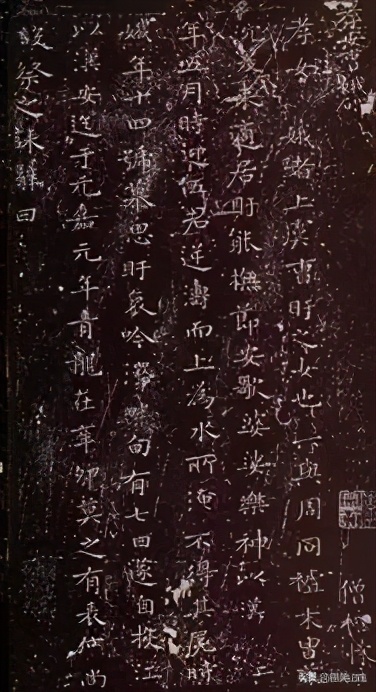 孝女曹娥碑
孝女娥者上虞曹盱之女也其先與周同祖末胄
沉爰来適居盱能撫節安歌婆娑樂神以漢
年五月時迎伍君逆濤而上為水所淹不得其屍時
娥年十四號慕思盱哀吟澤畔旬有七日遂自投江
以漢安迄于元嘉元年青龍在辛卯莫之有表度尚
設祭之誄辭曰
僧